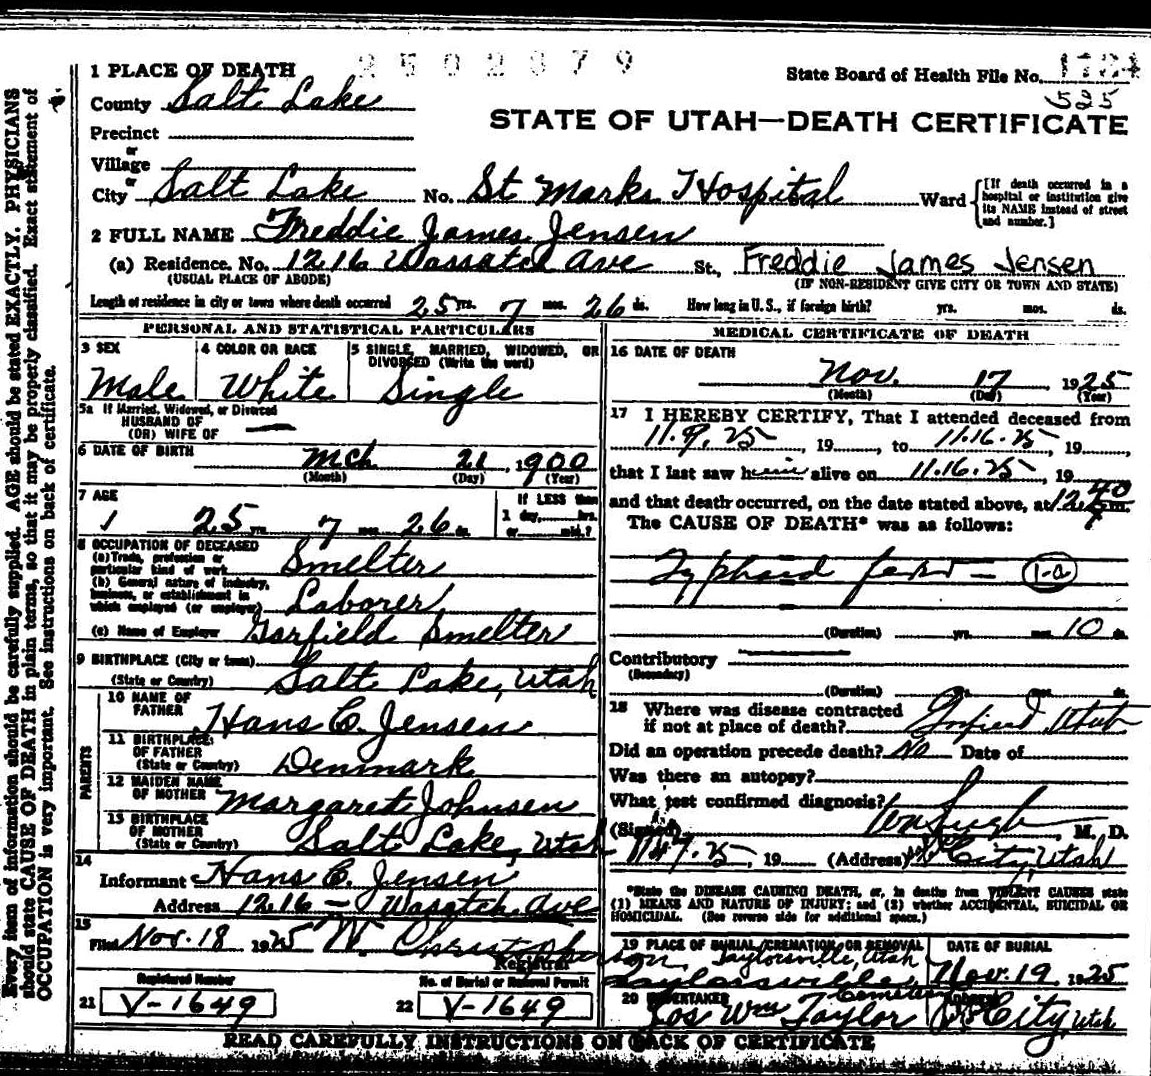 2502379
1 PLACE OF DEATH
State Board of Health File No.
525
County Salt Lake
STATE OF UTAH—DEATH CERTIFICATE
Precinct
or
Village
or
City Salt Lake No. St Marks Hospital Ward [If death occurred in a hospital or institution give its NAME instead of street and number.]
2 FULL NAME Freddie James Jensen
(a) Residence. No. 1216 Wassatch Ave St., Freddie James Jensen
(USUAL PLACE OF ABODE) (IF NON-RESIDENT GIVE CITY OR TOWN AND STATE)
Length of residence in city or town where death occurred 25 yrs. 7 mos. 26 ds. How long in U.S., if foreign birth? yrs. mos. ds.
PERSONAL AND STATISTICAL PARTICULARS
3 SEX
Male
4 COLOR OR RACE
White
5 SINGLE, MARRIED, WIDOWED, OR
DIVORCED (Write the word)
Single
5a If Married, Widowed, or Divorced
HUSBAND OF
(OR) WIFE OF
6 DATE OF BIRTH Mch. 21, 1900
(Month) (Day) (Year)
7 AGE
25 yrs. 7 mos. 26 ds.
If LESS than
1 day, hrs.
or min.?
8 OCCUPATION OF DECEASED
(a) Trade, profession or
particular kind of work Smelter
(b) General nature of industry,
business, or establishment in
which employed (or employer) Laborer
(c) Name of Employer Garfield Smelter
9 BIRTHPLACE (City or town)
(State or Country) Salt Lake, Utah
PARENTS
10 NAME OF
FATHER Hans C. Jensen
11 BIRTHPLACE
OF FATHER
(State or Country) Denmark
12 MAIDEN NAME
OF MOTHER Margaret Johnsen
13 BIRTHPLACE
OF MOTHER
(State or Country) Salt Lake, Utah
14
Informant Hans C. Jensen
Address 1216 - Wasatch Ave
15
Filed Nov. 18 1925 W. Christopherson
Registrar
Registered Number
21 V-1649
No. of Burial or Removal Permit
22 V-1649
MEDICAL CERTIFICATE OF DEATH
16 DATE OF DEATH
Nov. 17, 1925
(Month) (Day) (Year)
17 I HEREBY CERTIFY, That I attended deceased from
11.9.25, 19, to 11.16.25, 19,
that I last saw him alive on 11.16.25, 19
and that death occurred, on the date stated above, at m.
The CAUSE OF DEATH* was as follows:
Typhoid fever — 1-a
(Duration) yrs. mos. 10 ds.
Contributory
(Secondary)
(Duration) yrs. mos. ds.
18 Where was disease contracted
if not at place of death? Garfield, Utah
Did an operation precede death? No Date of
Was there an autopsy?
What test confirmed diagnosis?
(Signed) M. D.
11-17-25, 19 (Address) City, Utah
*State the DISEASE CAUSING DEATH, or, in deaths from VIOLENT CAUSES state
(1) MEANS AND NATURE OF INJURY; and (2) whether ACCIDENTAL, SUICIDAL OR
HOMICIDAL. (See reverse side for additional space.)
19 PLACE OF BURIAL, CREMATION, OR REMOVAL
Taylorsville, Utah
Taylorsville Cemetery
DATE OF BURIAL
Nov. 19 1925
20 UNDERTAKER
Jos Wm Taylor City, Utah
READ CAREFULLY INSTRUCTIONS ON BACK OF CERTIFICATE
Every item of information should be carefully supplied. AGE should be stated EXACTLY. PHYSICIANS
should state CAUSE OF DEATH in plain terms, so that it may be properly classified. Exact statement of
OCCUPATION is very important. See instructions on back of certificate.